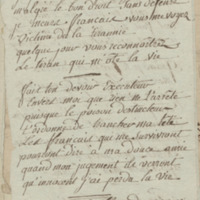 malgré le bon droit sans défense
je meurs français vous me voyez
victime de la tirannie
quelque jour vous reconnaîtrez
le tiran qui m'ote la vie
fait ton devoir executeur
Envers moi que rien ne t'arrête
puisque le pouvoir destructeur
t'ordonne de trancher ma tête
Les français qui me survivront
pourront dire a ma douce amie
quand mon jugement ils verront
qu'innocent j'ai perdu la vie